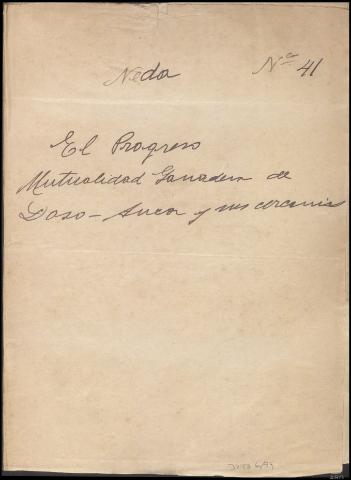 Neda Nº 41
El Progreso
Mutualidad Ganadera de
Doso - Ancos y sus cercanías